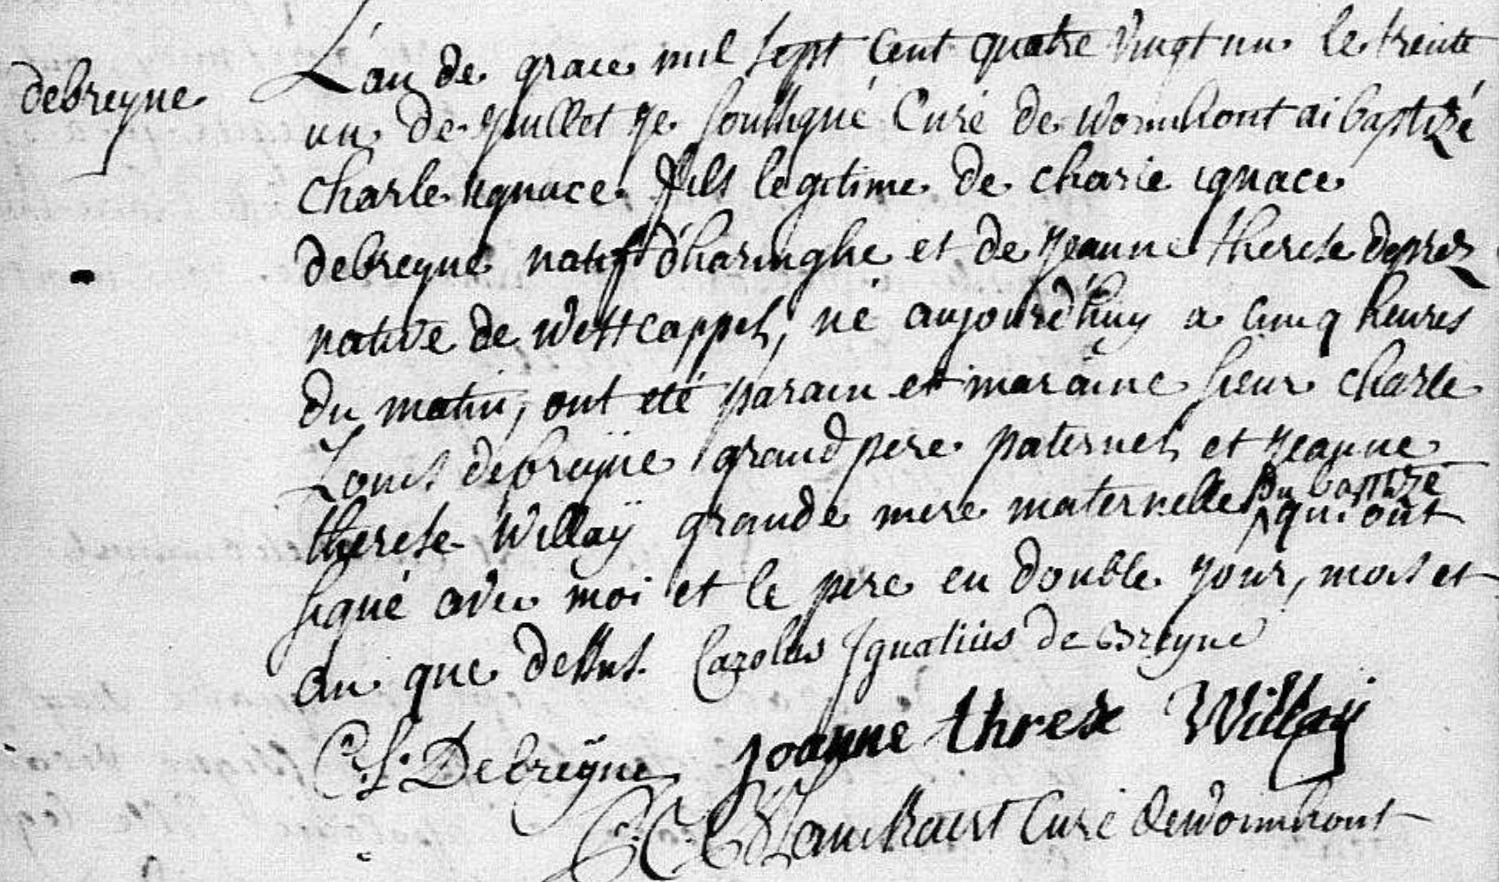 debreyne
L'an de grace mil sept cent quatre vingt un le trente
un de juillet je soussigné Curé de wormhout ai baptizé
charle ignace fils legitime de charle ignace
debreyne natif d'haringhe et de jeanne therese deprez
native de westcappel, né aujourd'huy a cinq heures
du matin, ont eté parain et maraine sieur charle
Louis debreyne grand pere paternel et jeanne
du baptizé
therese Willaÿ grande mere maternelle qui ont
signé avec moi et le pere en double jour, mois et
an que dessus. Carolus Ignatius de Breyne
C. L. Debreÿne joanne threse Willaij
Curé de wormhout